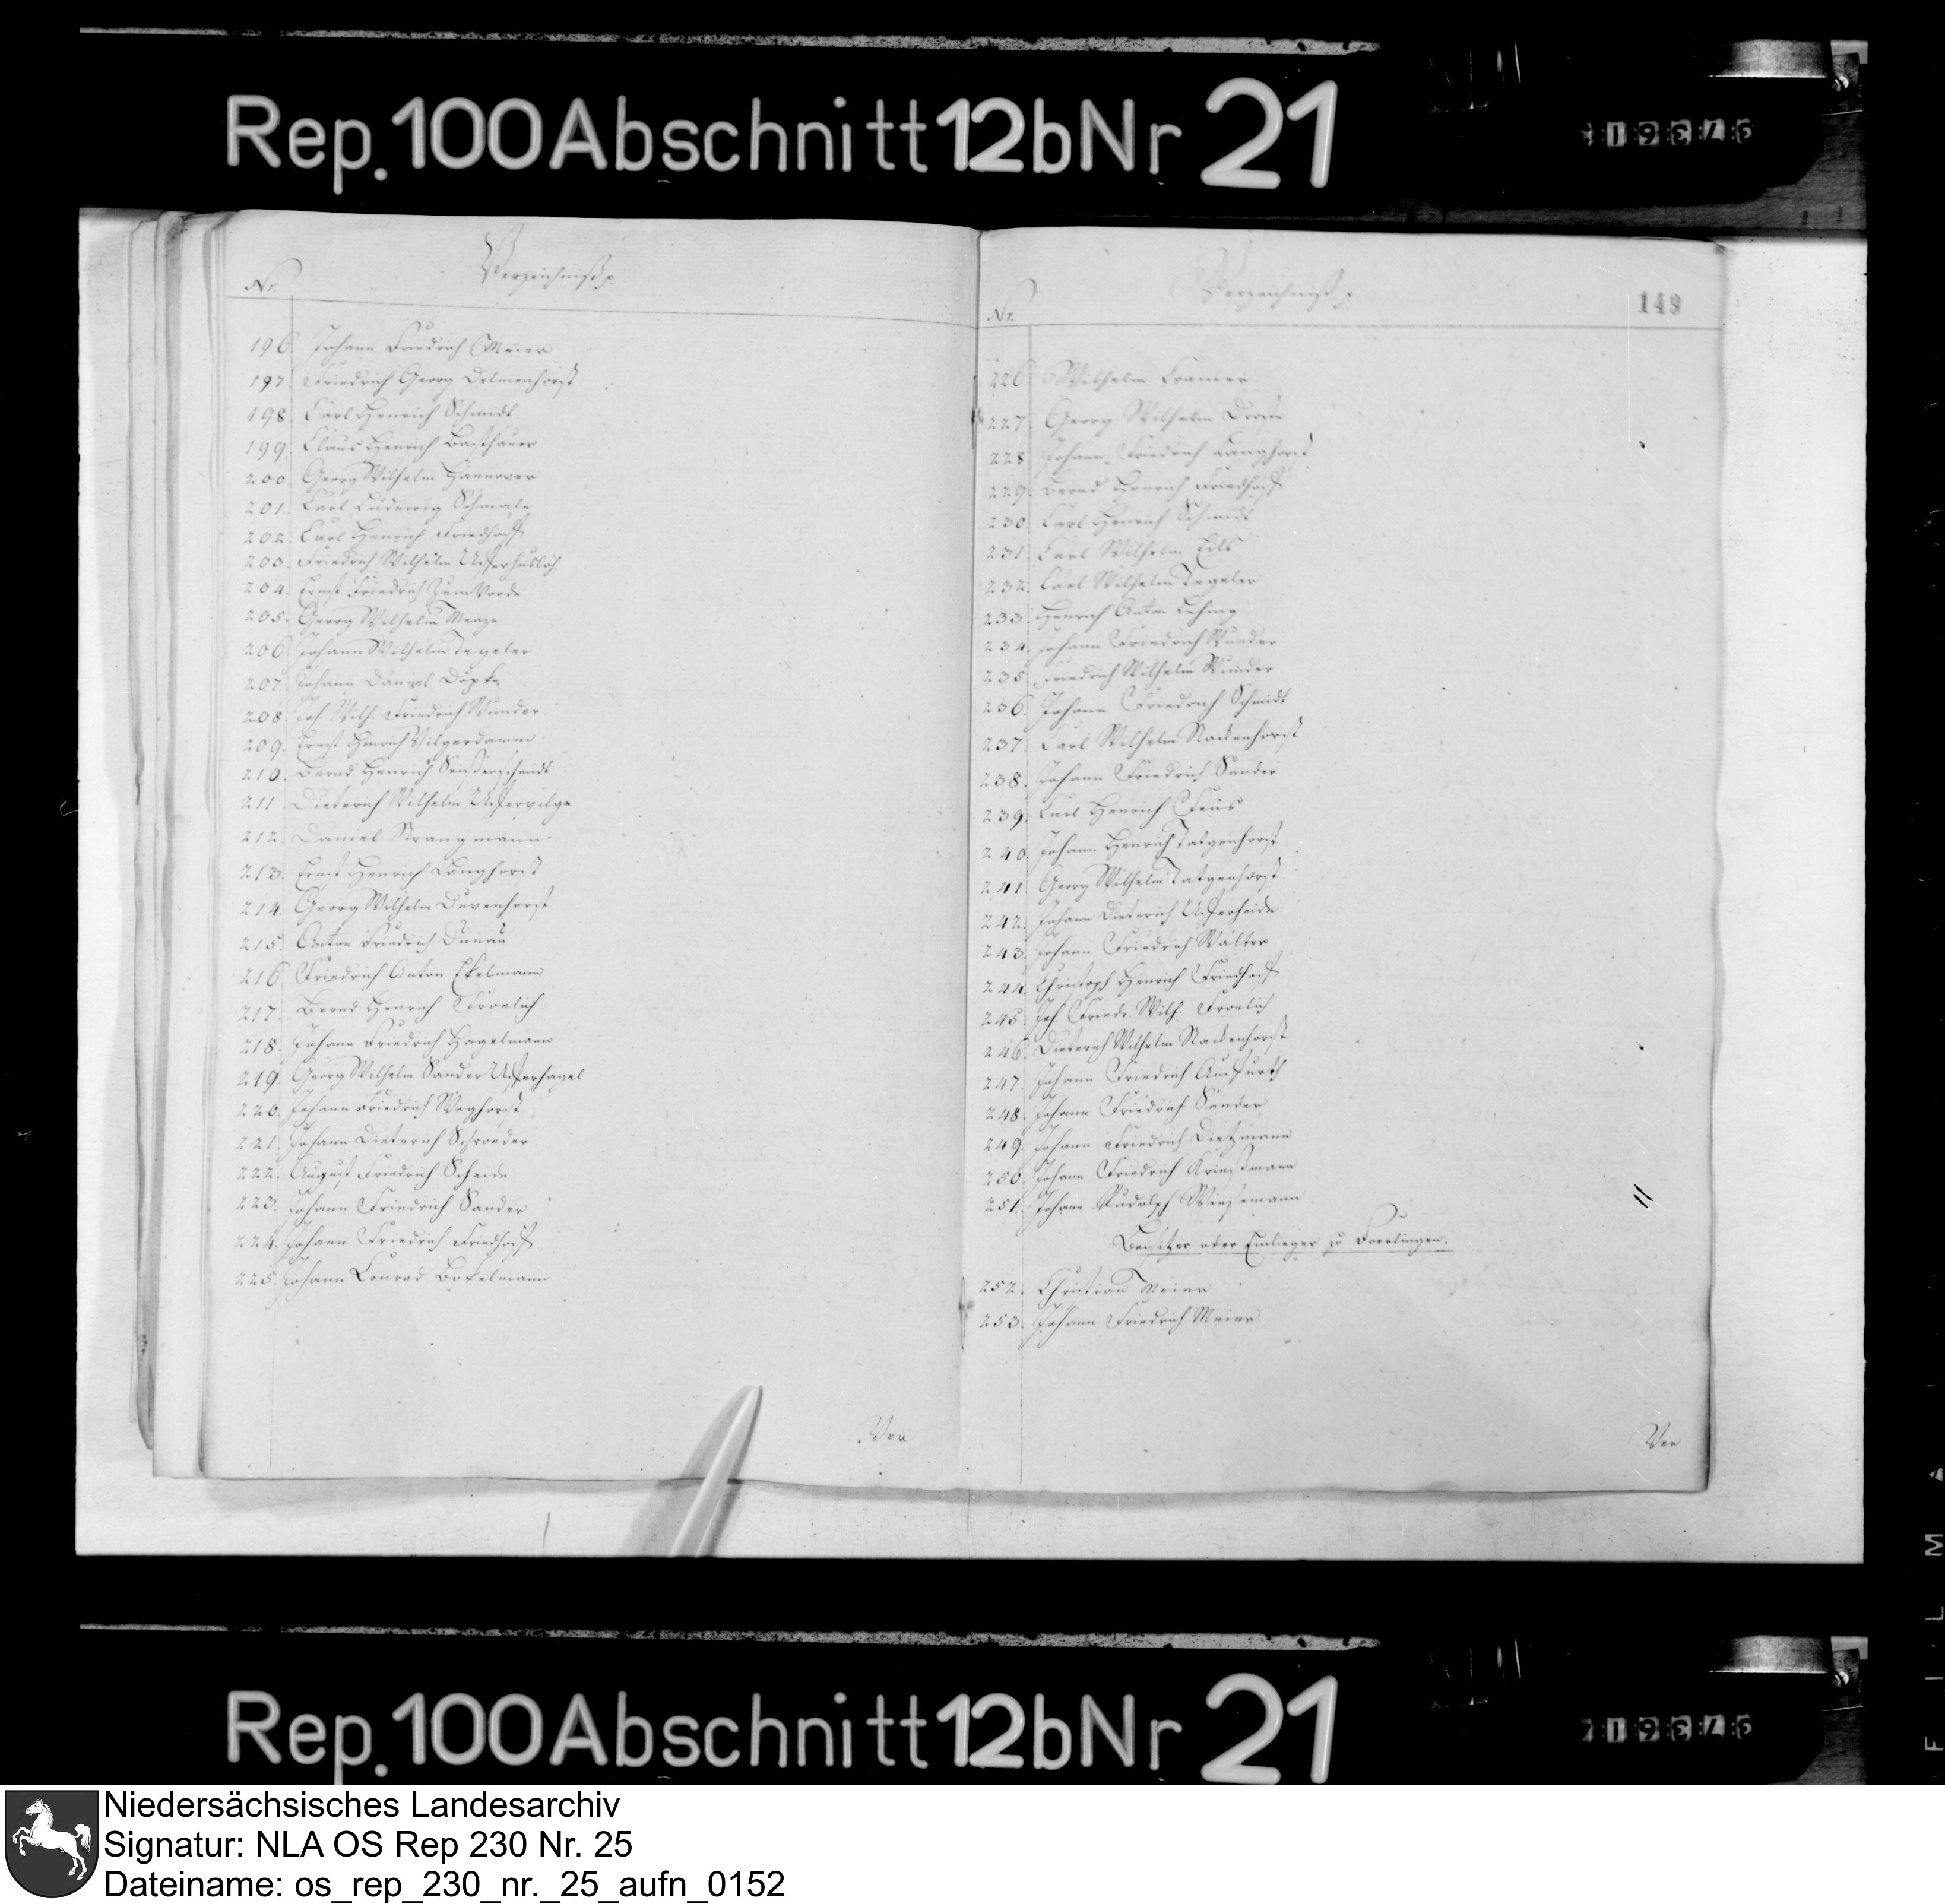 Rep. 100 Abschnitt 12b Nr 21
Nr.
Verzeichniß p.
196. Johann Friedrich Meier
197. Friedrich Georg Delmenhorst
198. Carl Henrich Schmidt
199. Claus Henrich
200. Georg Wilhelm Hannover
201. Carl Ludewig Schmale
202. Carl Henrich Friedhoff
203. Friedrich Wilhelm
204. Ernst Friedrich Zum Vorde
205. Georg Wilhelm
206. Johann Wilhelm Tegeler
207. Johann Daniel Döpke
208. Joh. Wilh. Friedrich Wunder
209. Ernst Henrich Vilgerdamm
210. Bernd Henrich
211. Dieterich Wilhelm
212. Daniel Strangmann
213. Ernst Henrich Langhorst
214. Georg Wilhelm Duvenhorst
215. Anton Friedrich Dunau
216. Friedrich Anton Ekelmann
217. Bernd Henrich Froelich
218. Johann Friedrich Hagelmann
219. Georg Wilhelm Sander
220. Johann Friedrich Weghorst
221. Johann Dieterich Schroeder
222. August Friedrich Scheide
223. Johann Friedrich Sander
224. Johann Friedrich Friedhoff
225. Johann Conrad Bokelmann
Ver
149
Nr.
Verzeichniß p.
226. Wilhelm Cramer
227. Georg Wilhelm
228. Johann Friedrich Langhorst
229. Bernd Henrich Friedhoff
230. Carl Henrich Schmidt
231. Carl Wilhelm Eils
232. Carl Wilhelm Tegeler
233. Henrich Anton
234. Johann Friedrich Wunder
235. Friedrich Wilhelm Wunder
236. Johann Friedrich Schmidt
237. Carl Wilhelm Nackenhorst
238. Johann Friedrich Sander
239. Carl Henrich
240. Johann Henrich Tatgenhorst
241. Georg Wilhelm Tatgenhorst
242. Johann Dieterich
243. Johann Friedrich Walter
244. Christoph Henrich Friedhoff
245. Joh. Friedr. Wilh. Froelich
246. Dieterich Wilhelm Nackenhorst
247. Johann Friedrich
248. Johann Friedrich Sander
249. Johann Friedrich Dietzmann
250. Johann Friedrich
251. Johann Rudolph
Beisitzer oder Einlieger zu
252. Christian Meier
253. Johann Friedrich Meier
Ver
Rep. 100 Abschnitt 12b Nr 21
FILM
Niedersächsisches Landesarchiv
Signatur: NLA OS Rep 230 Nr. 25
Dateiname: os_rep_230_nr._25_aufn_0152